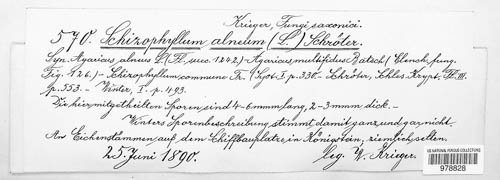 Krieger, Fungi saxonici.
570. Schizophyllum alneum (L.) Schröter.
Syn. Agaricus alneus L. (Fl. suec. 1242) – Agaricus multifidus Batsch (Elench. fung.
Fig. 126.) – Schizophyllum commune Fr. Syst. I p. 330. – Schröter, Schles. Krypt. Fl. III.
p. 553. – Winter, I. p. 493.
Die hier mitgetheilten Sporen sind 4–6 mmm lang, 2–3 mmm dick. –
Winters Sporenbeschreibung stimmt damit ganz und gar nicht.
An Eichenstämmen auf dem Schiffbauplatze in Königstein, ziemlich selten.
25. Juni 1890. leg. W. Krieger.
US NATIONAL FUNGUS COLLECTIONS
978828